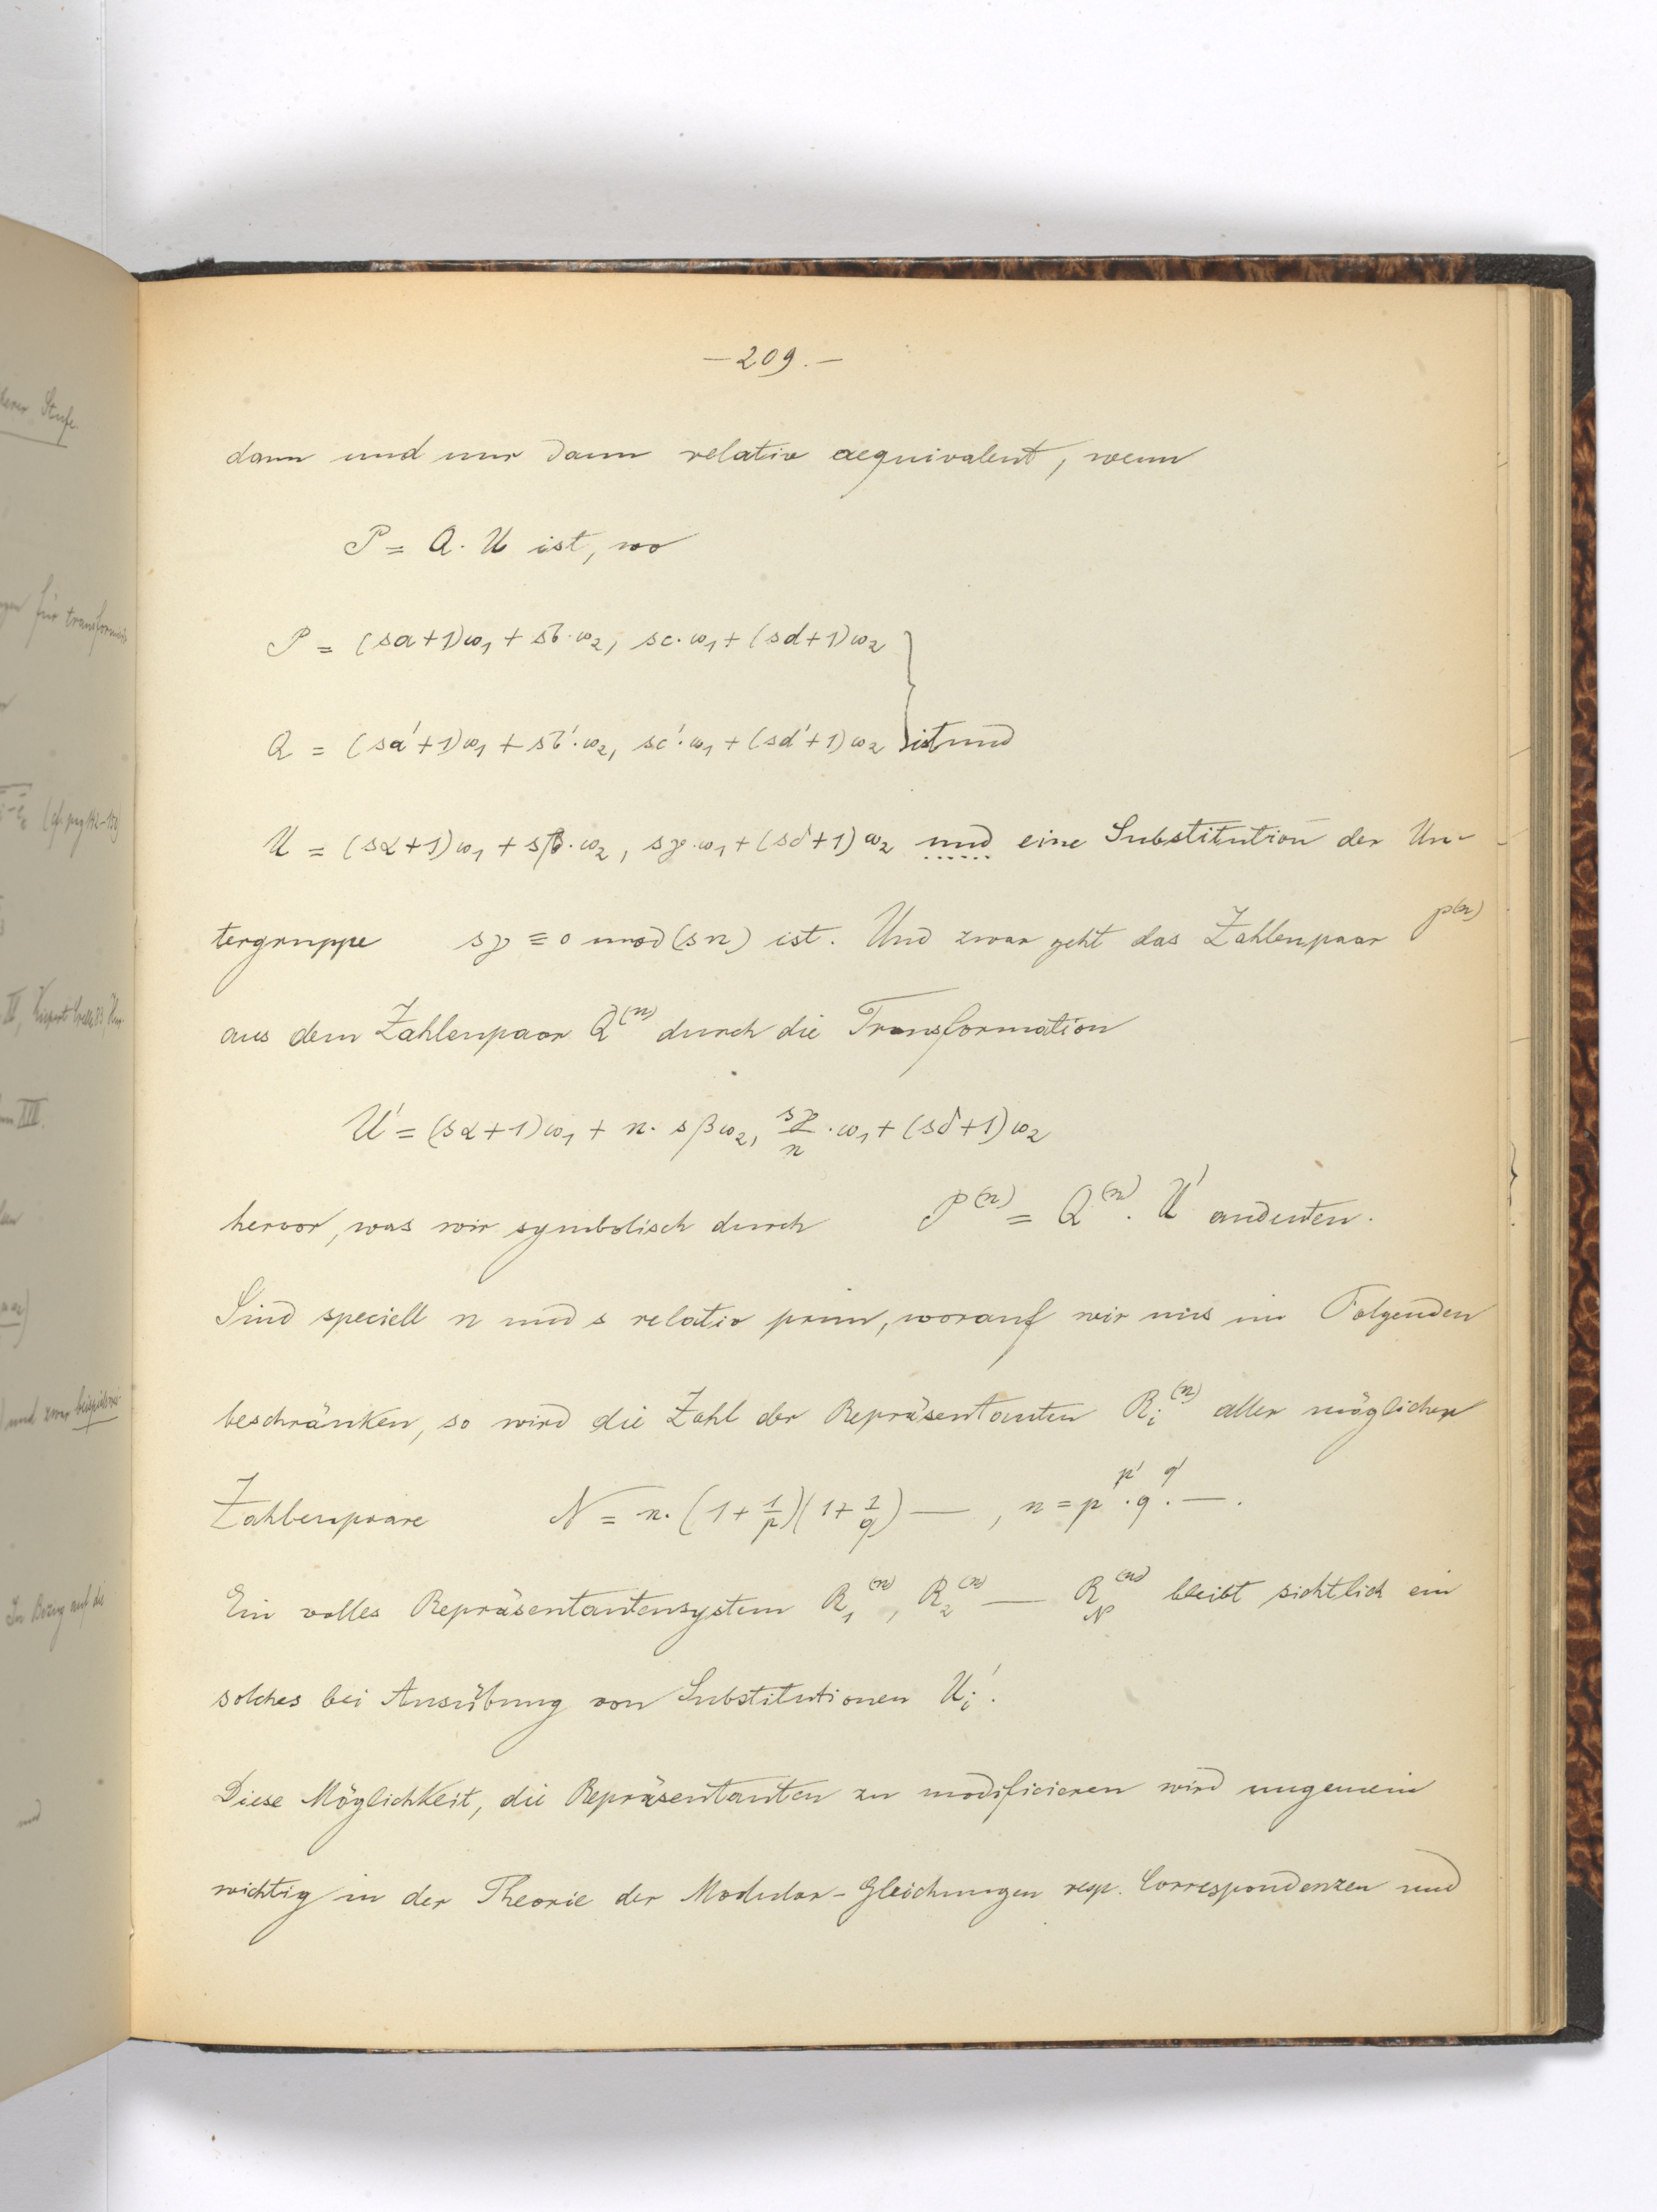 — 209. —
dann und nur dann relativ aequivalent, wenn
P = Q. U ist, wo
P = (sa+1)ω₁ + sb·ω₂, sc·ω₁ + (sd+1)ω₂
Q = (sa'+1)ω₁ + sb'·ω₂, sc'·ω₁ + (sd'+1)ω₂ } ist und
U = (sα+1)ω₁ + sβ·ω₂, sγ·ω₁ + (sδ+1)ω₂ und eine Substitution der Un-
tergruppe sγ ≡ 0 mod (sn) ist. Und zwar geht das Zahlenpaar P⁽ⁿ⁾
aus dem Zahlenpaar Q⁽ⁿ⁾ durch die Transformation
U' = (sα+1)ω₁ + n. sβω₂, sγ/n ·ω₁ + (sδ+1)ω₂
hervor, was wir symbolisch durch P⁽ⁿ⁾ = Q⁽ⁿ⁾. U' andeuten.
Sind speciell n und s relativ prim, worauf wir uns im Folgenden
beschränken, so wird die Zahl der Repräsentanten Rᵢ⁽ⁿ⁾ aller möglichen
Zahlenpaare N = n. (1 + 1/p)(1 + 1/q) — , n = p^p' . q^q' . — .
Ein volles Repräsentantensystem R₁⁽ⁿ⁾, R₂⁽ⁿ⁾ — R_N⁽ⁿ⁾ bleibt sichtlich ein
solches bei Ausübung von Substitutionen Uᵢ'.
Diese Möglichkeit, die Repräsentanten zu modificieren wird ungemein
wichtig in der Theorie der Modular-Gleichungen resp. Correspondenzen und
Stufe.
für
(cf. pag 142-150)
III.
und zwar
In Bezug auf die
und